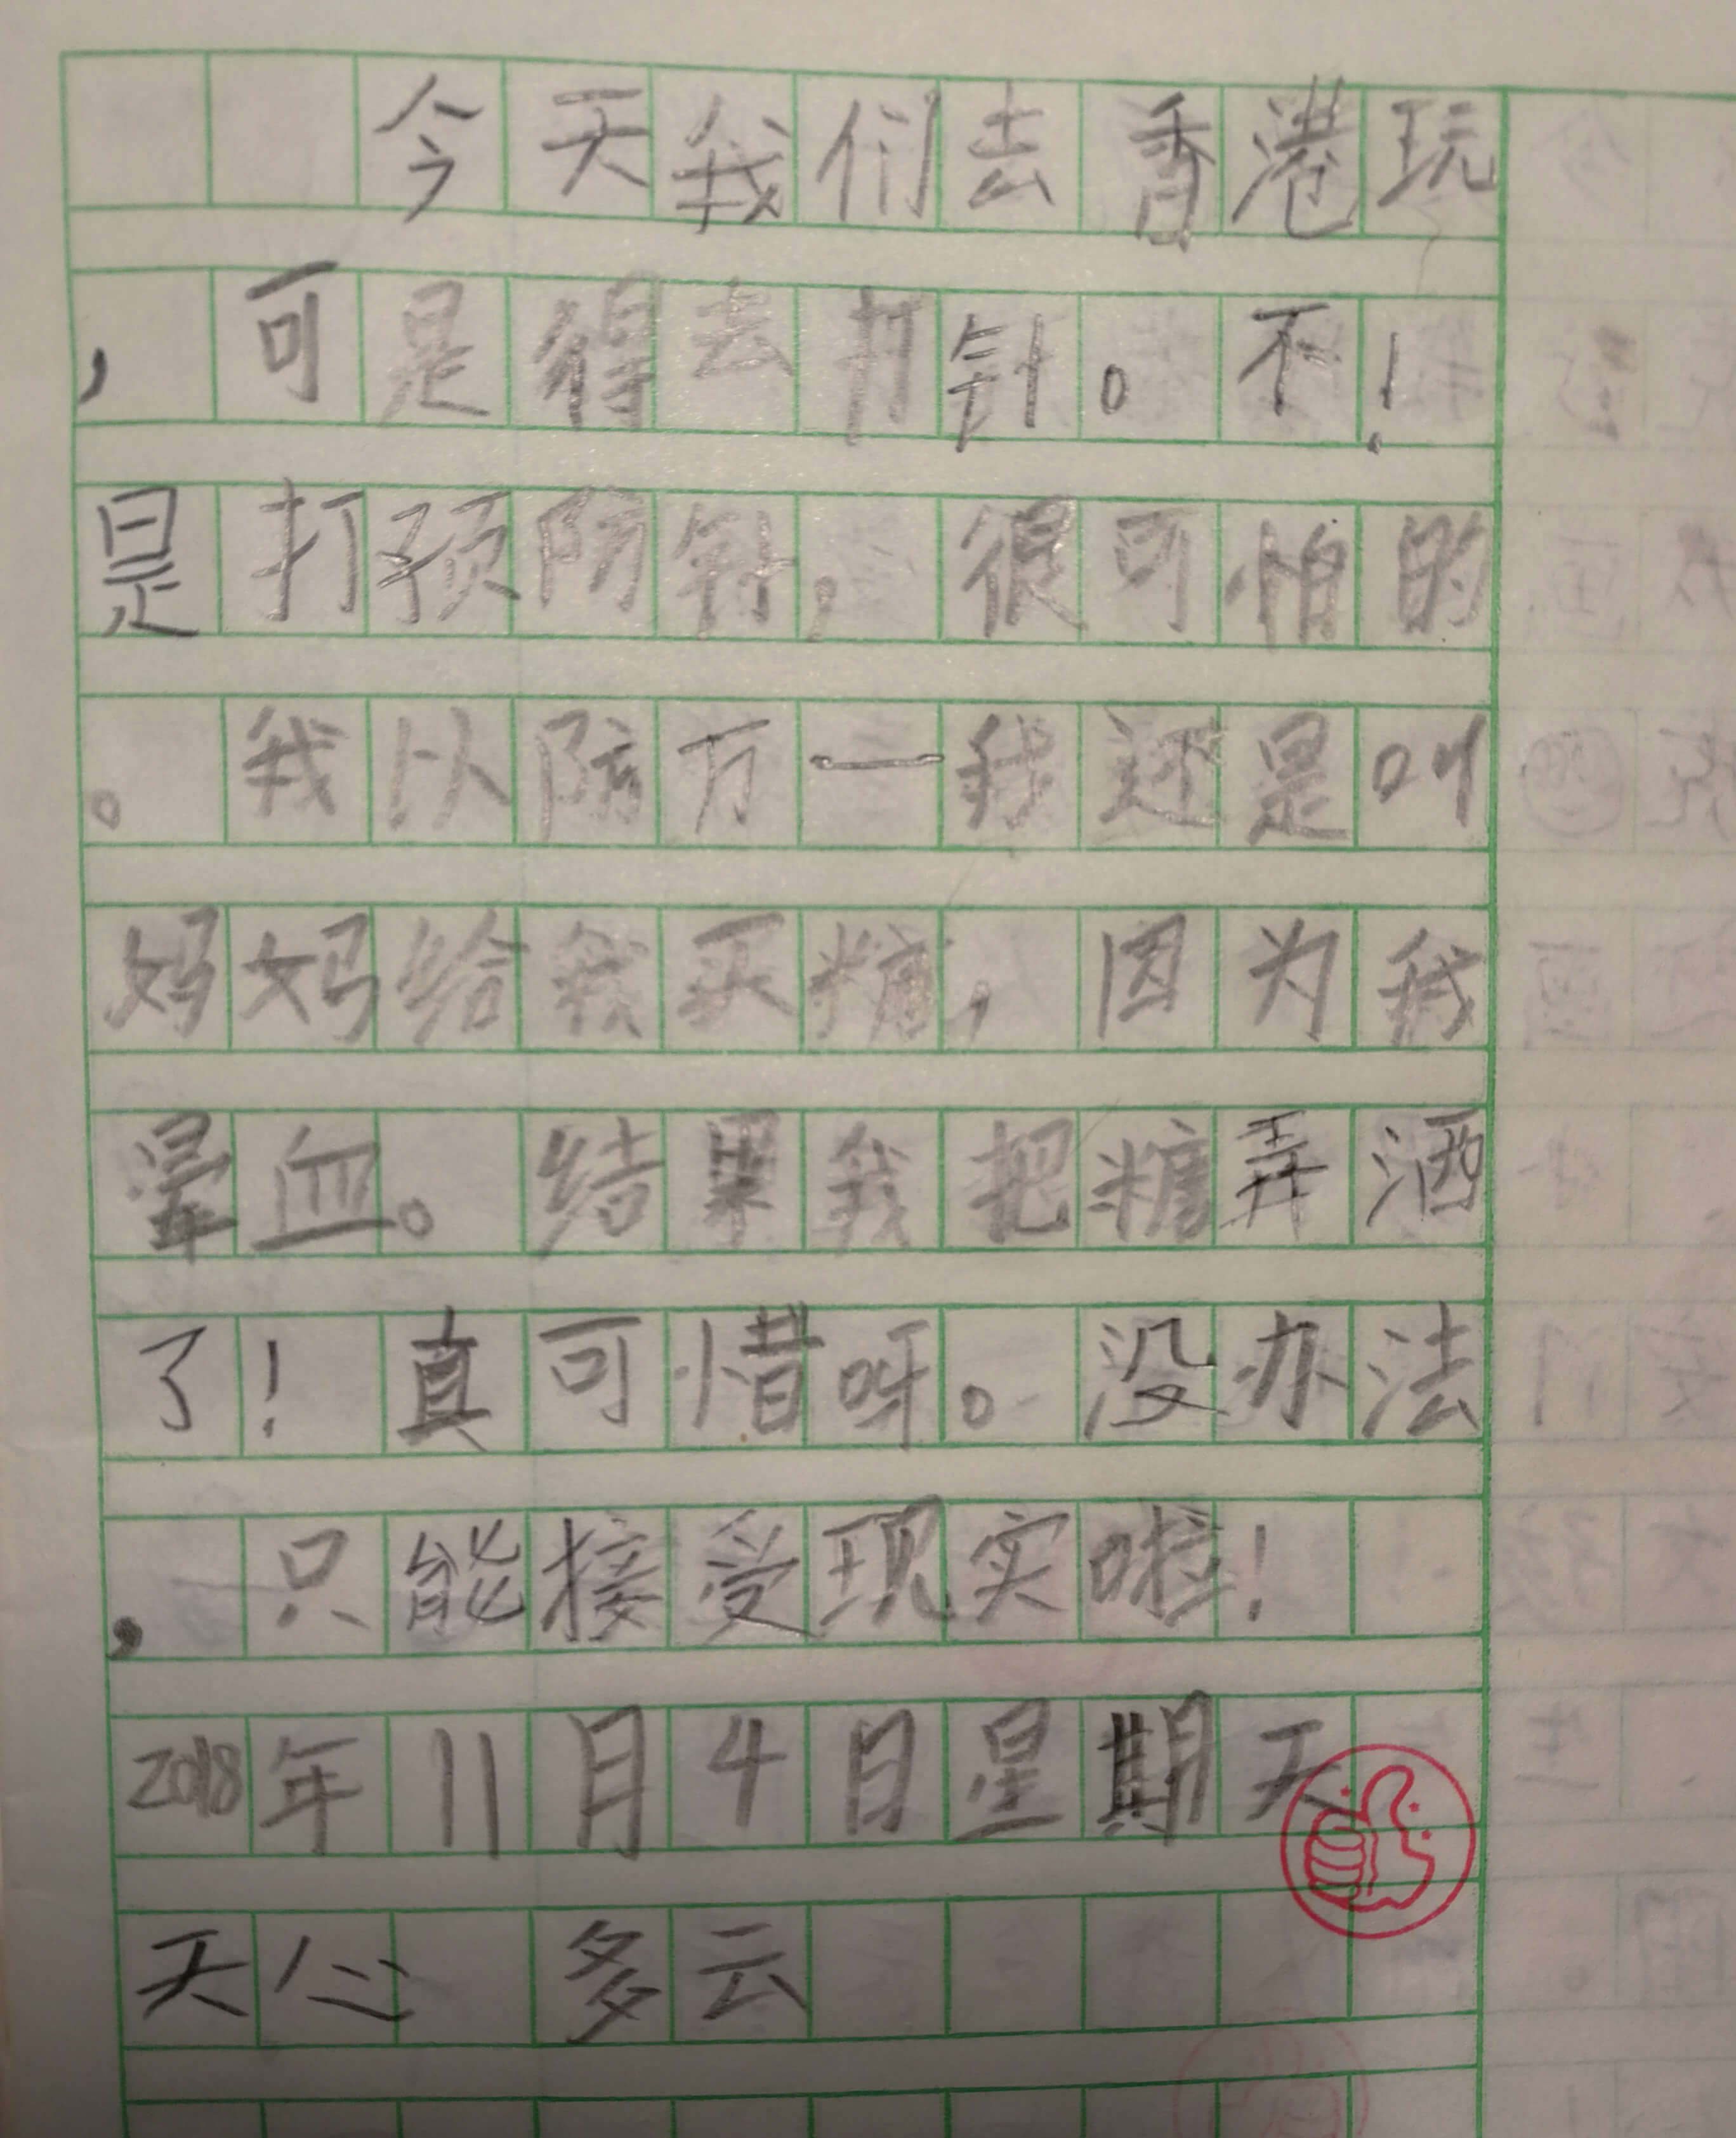 今天我们去香港玩
，可是得去打针。不！
是打预防针，很可怕的
。我以防万一我还是叫
妈妈给我买糖，因为我
晕血。结果我把糖弄洒
了！真可惜呀。没办法
，只能接受现实啦！
2018年11月4日星期天
天心 多云